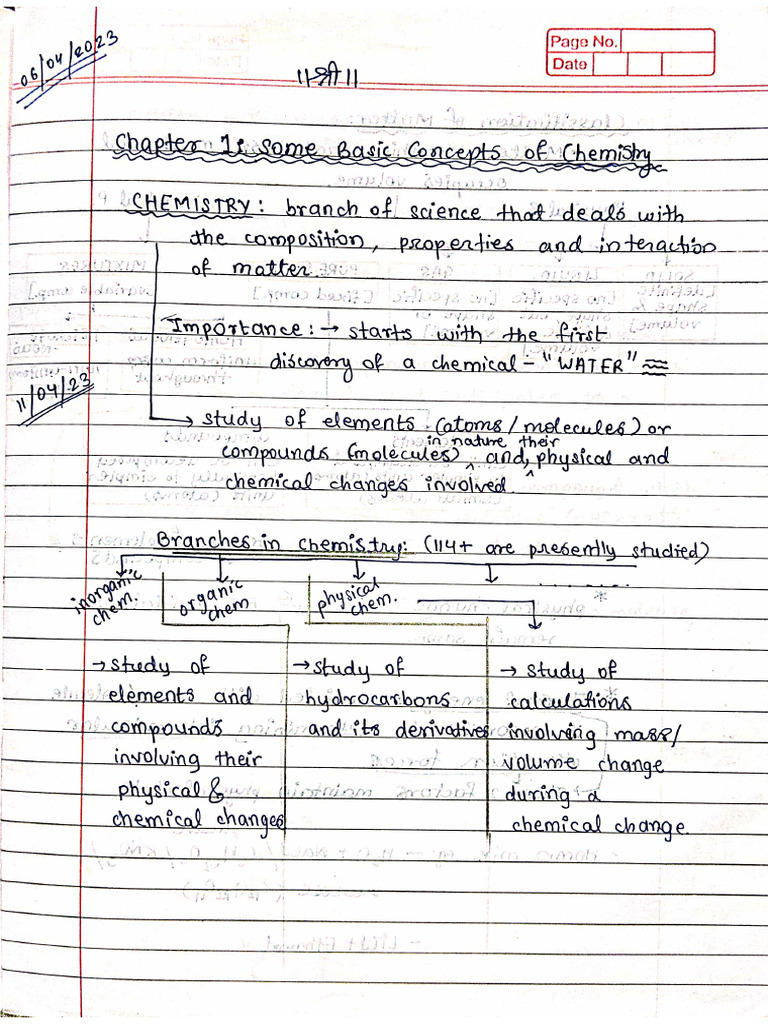 06/04/2023
Page No.
Date
॥श्री॥
Chapter 1: Some Basic Concepts of Chemistry
CHEMISTRY: branch of science that deals with
the composition, properties and interaction
of matter.
Importance: → starts with the first
discovery of a chemical - "WATER"
11/04/23
→ study of elements (atoms/molecules) or
in nature their
compounds (molecules) ^ and, ^ physical and
chemical changes involved.
Branches in chemistry: (114+ are presently studied)
inorganic chem.
organic chem
physical chem.
.......
*
→ study of
elements and
compounds
involving their
physical &
chemical changes
→ study of
hydrocarbons
and its derivatives
→ study of
calculations
involving mass/
volume change
during a
chemical change.